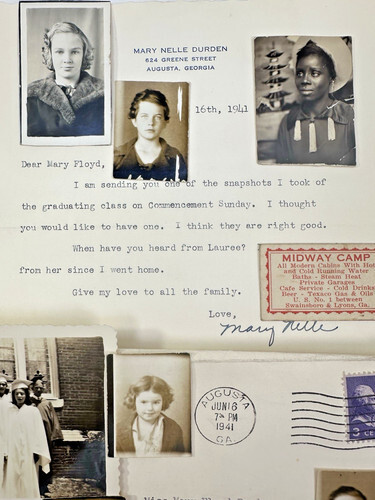 MARY NELLE DURDEN
624 GREENE STREET
AUGUSTA, GEORGIA
16th, 1941
Dear Mary Floyd,
I am sending you one of the snapshots I took of
the graduating class on Commencement Sunday. I thought
you would like to have one. I think they are right good.
When have you heard from Lauree?
from her since I went home.
Give my love to all the family.
Love,
Mary Nelle
MIDWAY CAMP
All Modern Cabins With Hot
and Cold Running Water
Baths - Steam Heat
Private Garages
Cafe Service - Cold Drinks
Beer - Texaco Gas & Oils
U. S. No. 1 between
Swainsboro & Lyons, Ga.
AUGUSTA
JUN 16
7 PM
1941
GA.